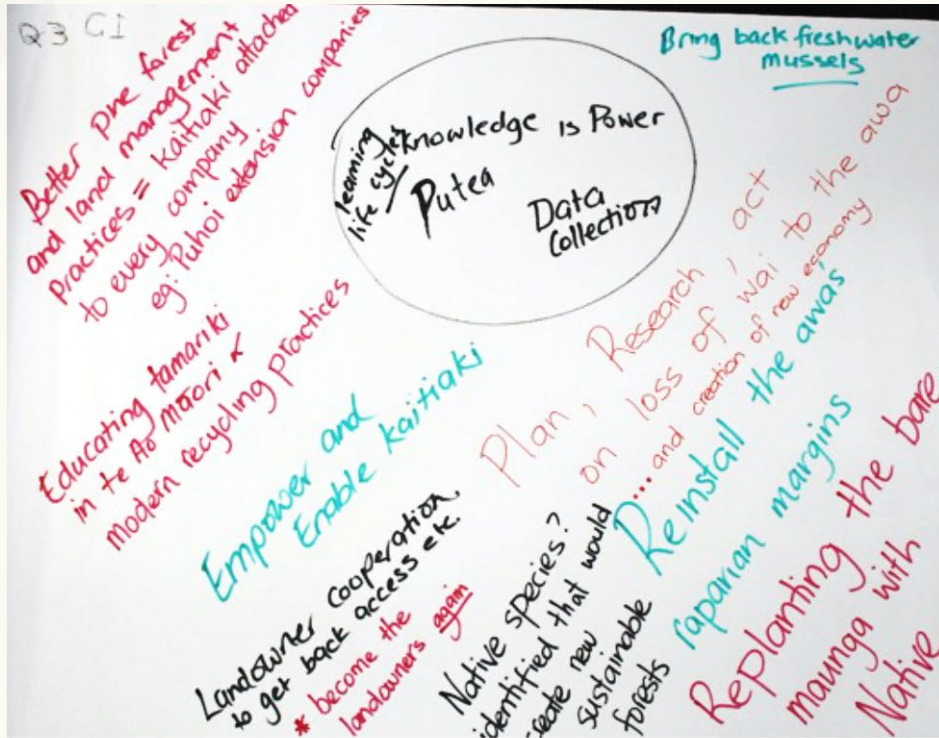 Q3 G1
Better pine forest
and land management
practices = kaitiaki attached
to every company
eg: Puhoi extension companies
Bring back freshwater
mussels
learning
life cycles
Knowledge is Power
Putea
Data
Collection
Educating tamariki
in te Ao Māori &
modern recycling practices
Empower and
Enable kaitiaki
Plan, Research, act
on loss of wai to the awa
.... and creation of new economy
Reinstall the awa's
raparian margins
Landowner cooperation,
to get back access etc.
* become the
landowners again
Native species?
identified that would
create new
sustainable
forests
Replanting the bare
maunga with
Native